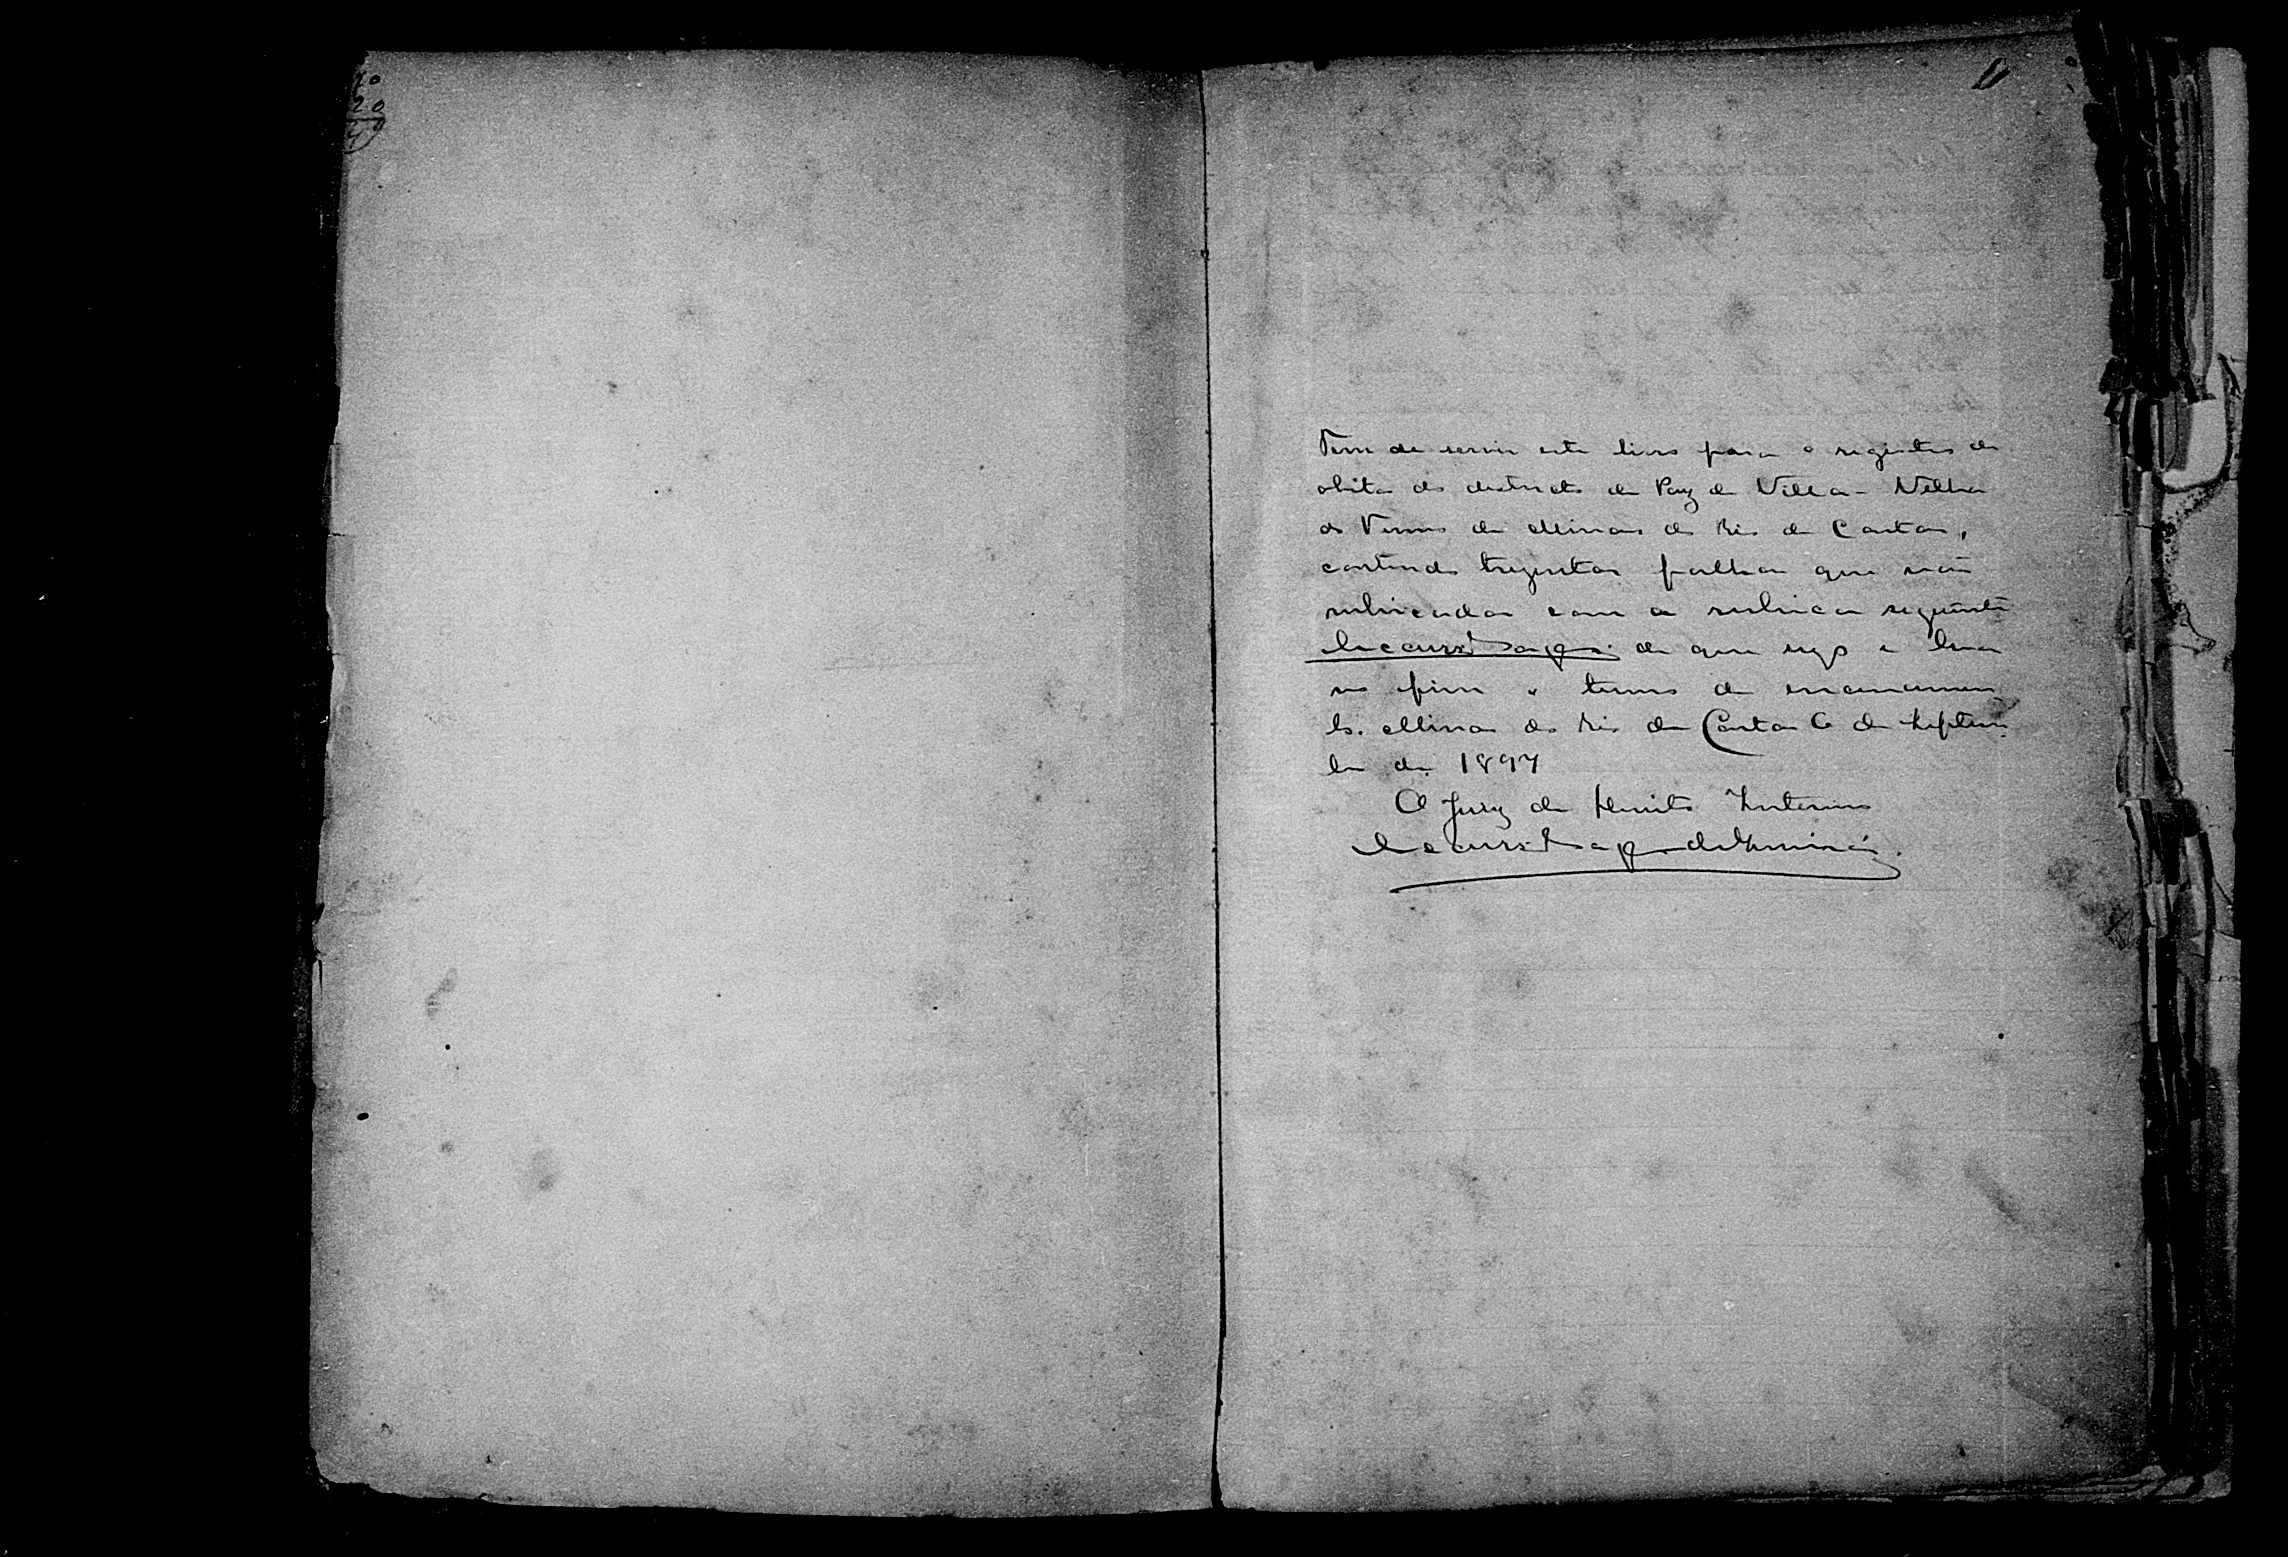 Tem de servir este livro para o registro de
obitos do districto de Paz de Villa-Velha
do Termo de Minas do Rio de Contas,
contendo trezentas folhas que vão
rubricadas com a rubrica seguinte
de que uzo e leva
no fim o termo de encerramen
to. Minas do Rio de Contas 6 de Septem
bro de 1897
O Juiz de Direito Interino